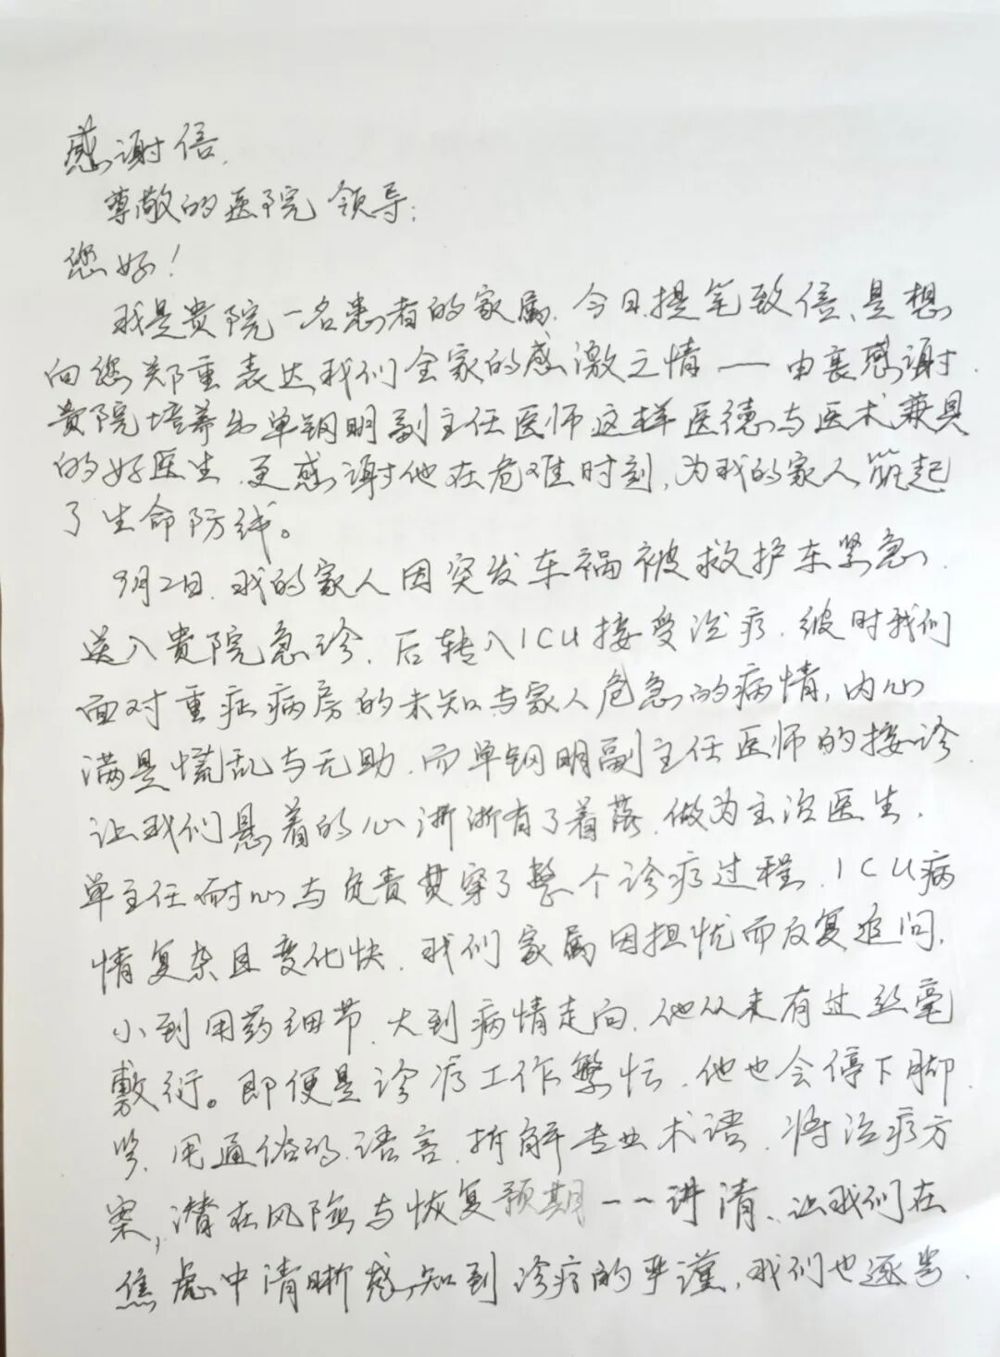 感谢信.
尊敬的医院领导:
您好!
我是贵院一名患者的家属.今日提笔致信、是想
向您郑重表达我们全家的感激之情——由衷感谢.
贵院培养出单钢明副主任医师这样医德与医术兼具
的好医生.更感谢他在危难时刻,为我的家人筑起
了生命防线。
9月2日.我的家人因突发车祸被救护车紧急.
送入贵院急诊.后转入ICU接受治疗.彼时我们
面对重症病房的未知与家人危急的病情,内心
满是慌乱与无助.而单钢明副主任医师的接诊.
让我们悬着的心渐渐有了着落.做为主治医生.
单主任耐心与负责贯穿了整个诊疗过程.ICU病
情复杂且变化快.我们家属因担忧而反复追问.
小到用药细节.大到病情走向.他从来有过丝毫
敷衍。即便是诊疗工作繁忙.他也会停下脚.
步.用通俗的语言.拆解专业术语.将治疗方
案,潜在风险与恢复预期一一讲清、让我们在
焦虑中清晰感知到诊疗的严谨,我们也逐步.